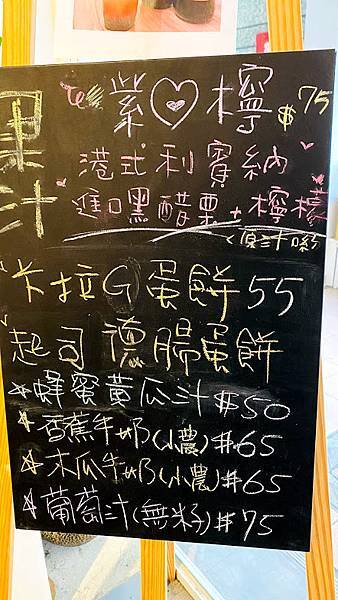 果汁
紫♡檸 $75
港式利賓納
進口黑醋栗+檸檬
(原汁喲)
卡拉G蛋餅 55
起司德腸蛋餅
蜂蜜黃瓜汁 $50
香蕉牛奶(小農) $65
木瓜牛奶(小農) $65
葡萄汁(無籽) $75